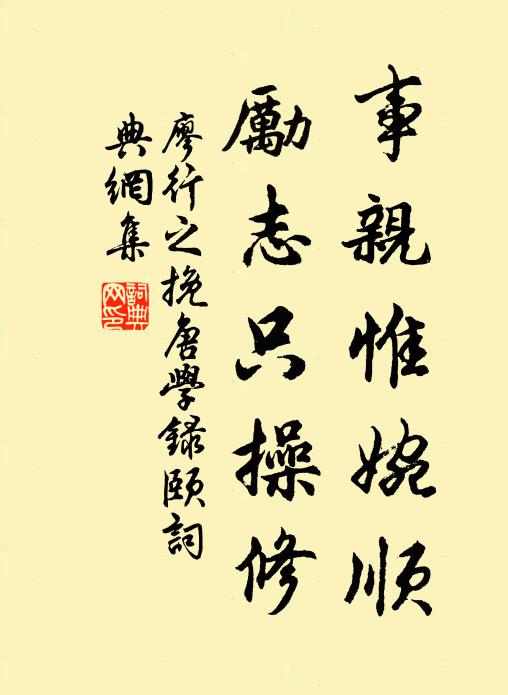 事親惟婉順
勵志只操修
廖行之挽唐學錄頤詞
典網集
詞典網印